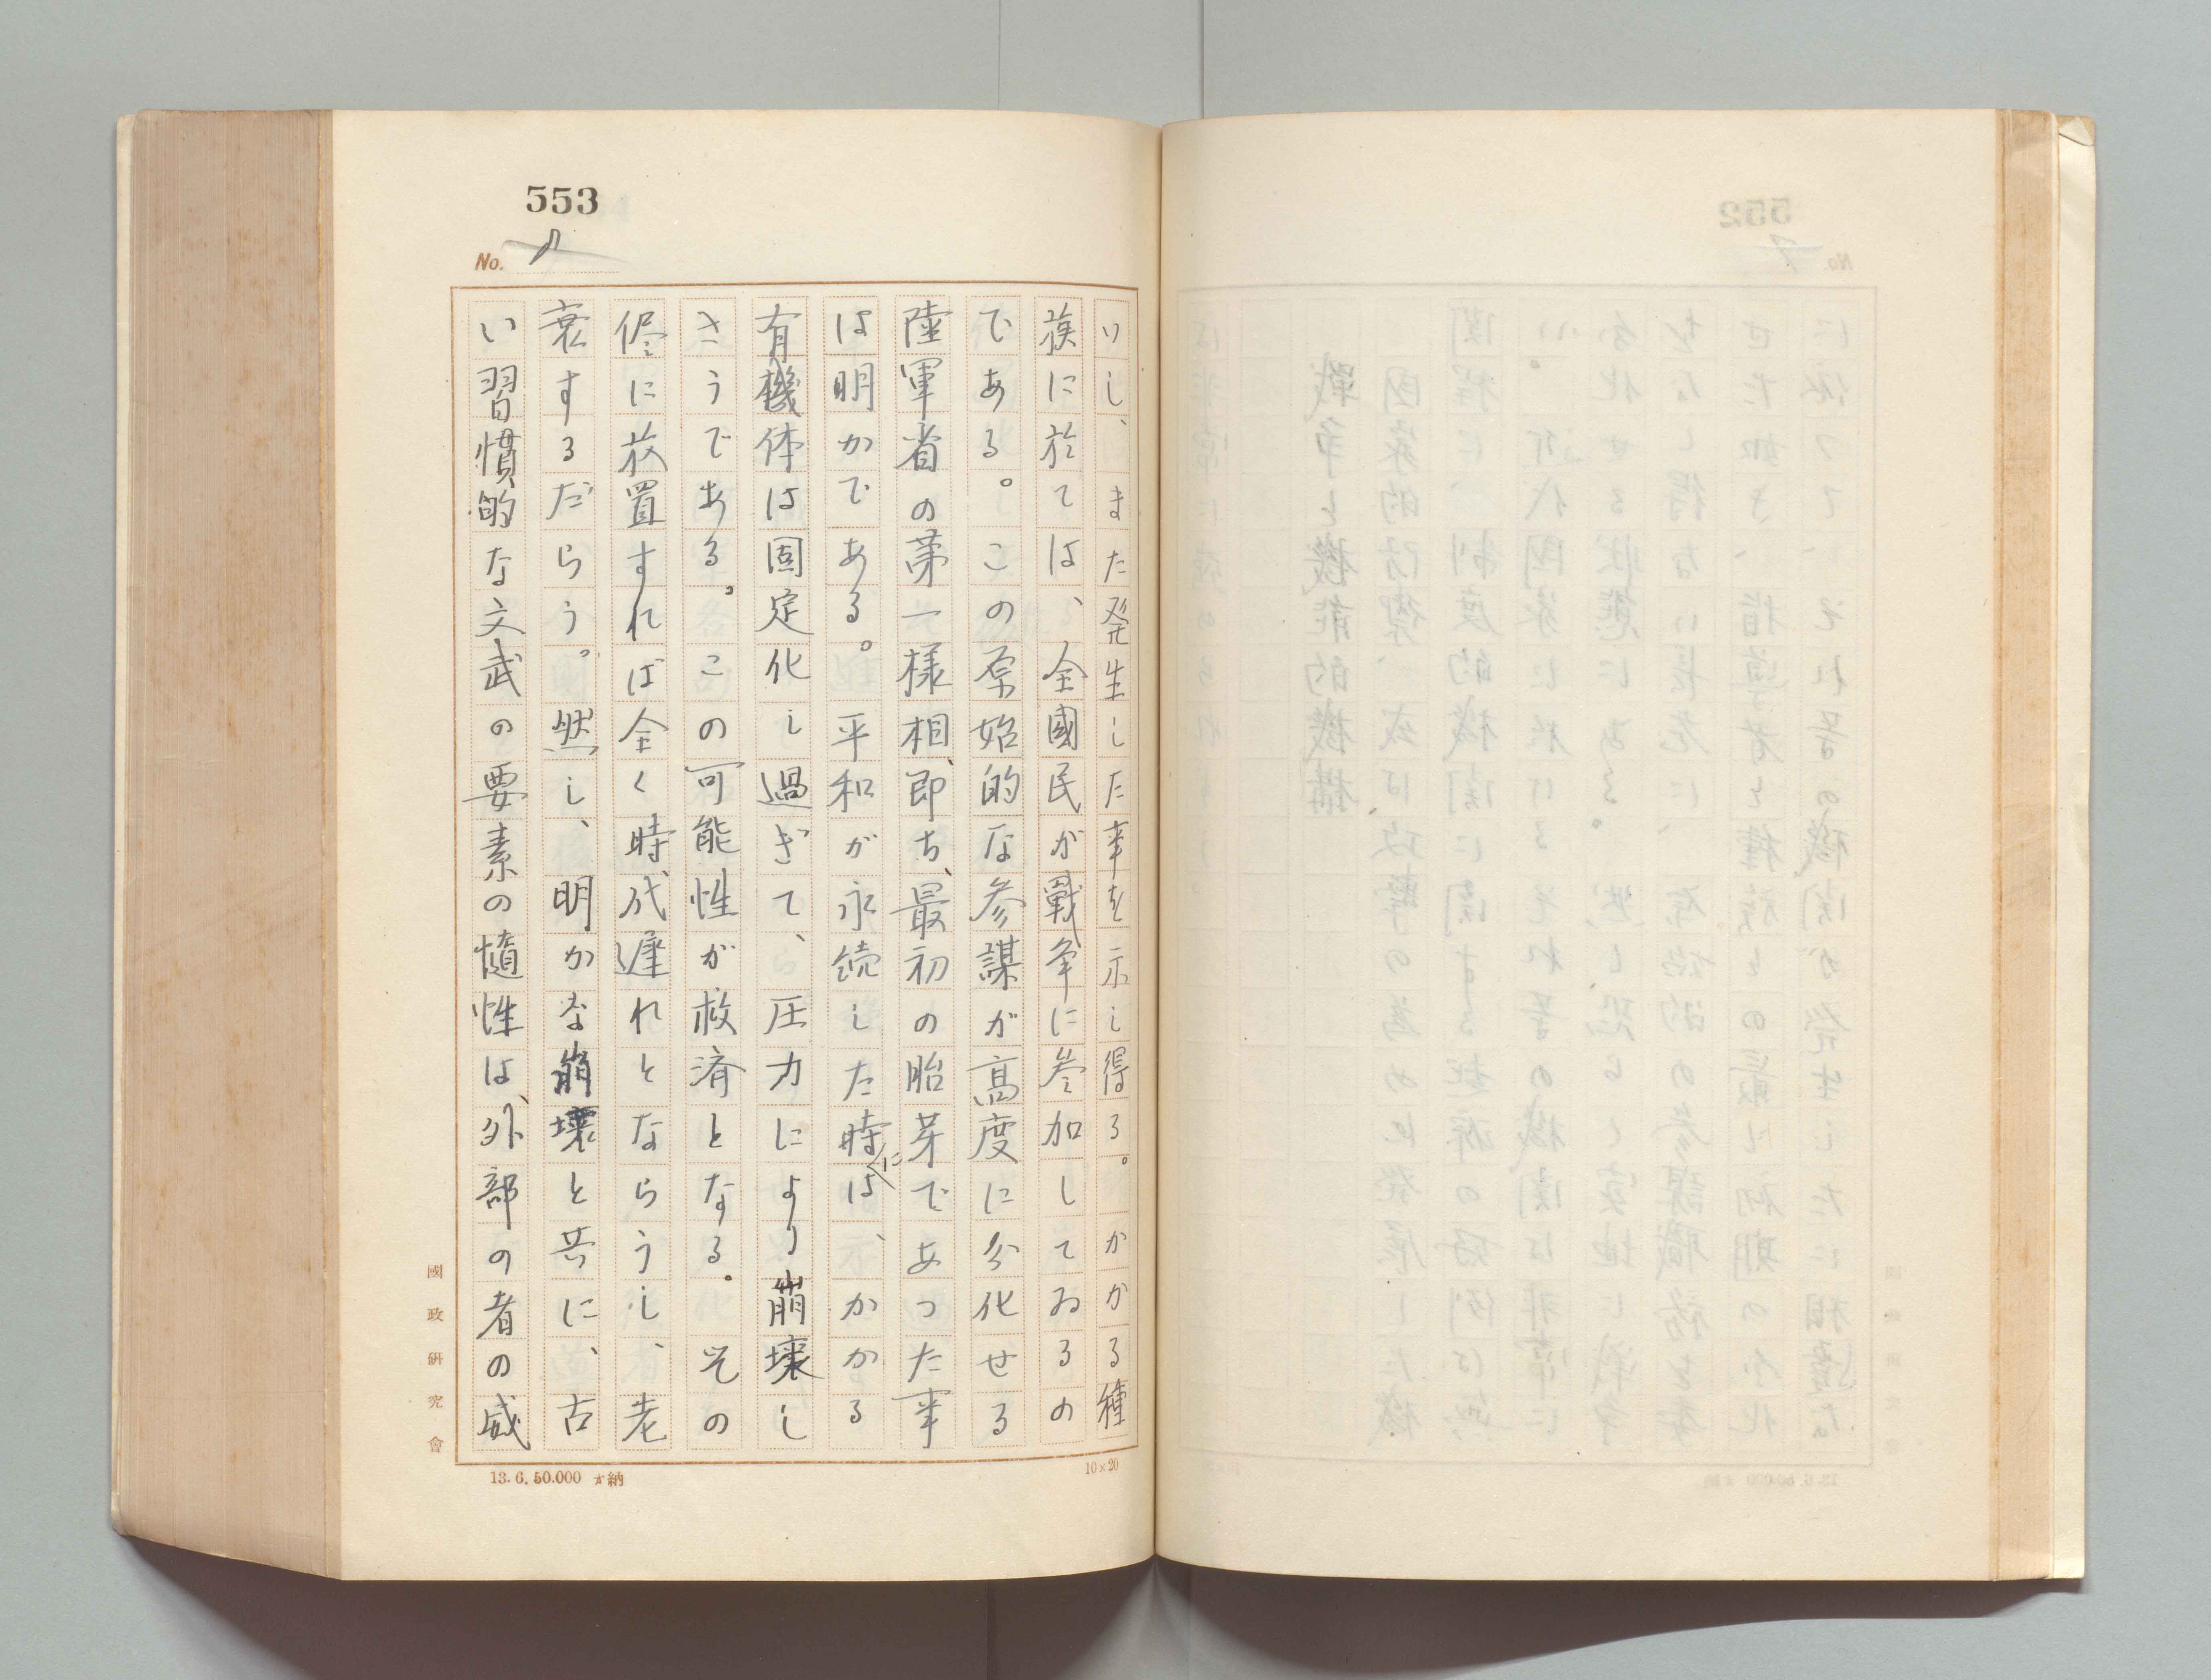 553
No. 8
いし、また発生した事を示し得る。かかる種
族に於ては、全國民が戰争に參加してゐるの
である。この原始的な参謀が高度に分化せる
陸軍省の第一様相、即ち、最初の胎芽であつた事
は明かである。平和が永続した時には、かかる
有機体は固定化し過ぎて、圧力により崩壊し
さうである。この可能性が救済となる。その
儘に放置すれば全く時代遅れとならうし、老
衰するだらう。然し、明かな崩壊と共に、古
い習慣的な文武の要素の惰性は、外部の者の威
國政研究會
13.6.50.000 納
10×20